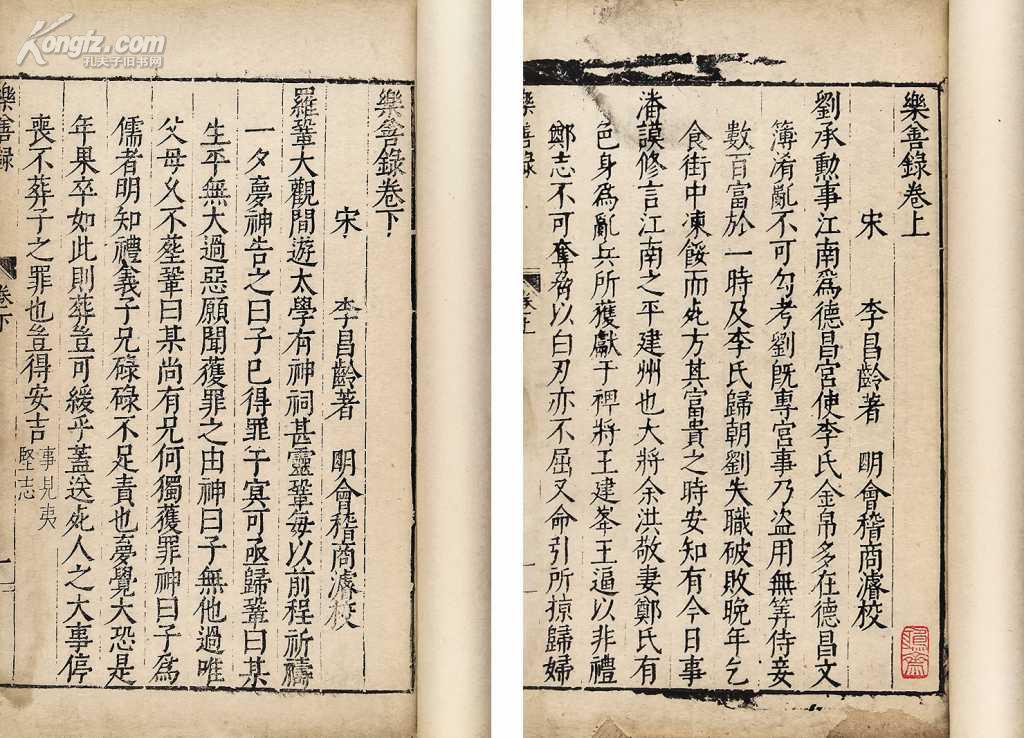 樂善錄卷上
宋　李昌齡著　明會稽商濬校
劉承勳事江南爲德昌宮使李氏金帛多在德昌文
簿淆亂不可勾考劉旣專宮事乃盗用無筭侍妾
數百富於一時及李氏歸朝劉失職破敗晚年乞
食街中凍餒而死方其富貴之時安知有今日事
潘謨修言江南之平建州也大將余洪敬妻鄭氏有
色身為亂兵所獲獻于禆將王建峯王逼以非禮
鄭志不可奪脅以白刃亦不屈又命引所掠歸婦
樂善錄
卷上
一
樂善錄卷下
宋　李昌齡著　明會稽商濬校
羅鞏大觀間遊太學有神祠甚靈鞏每以前程祈禱
一夕夢神告之曰子已得罪于冥可亟歸鞏曰某
生平無大過惡願聞獲罪之由神曰子無他過唯
父母久不塟鞏曰某尚有兄何獨獲罪神曰子爲
儒者明知禮義子兄碌碌不足責也夢覺大恐是
年果卒如此則葬豈可緩乎蓋送死人之大事停
喪不葬子之罪也豈得安吉事見夷堅志
樂善錄
卷下
一
Kongfz.com
孔夫子旧书网